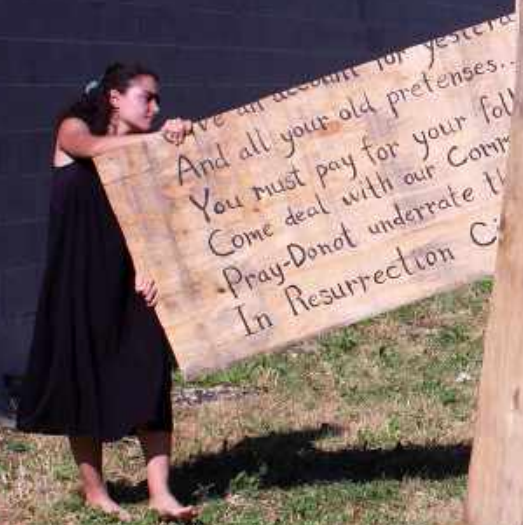 ve an account for yesterd
And all your old pretenses..
You must pay for your foll
Come deal with our Comm
Pray-Donot underrate th
In Resurrection Ci